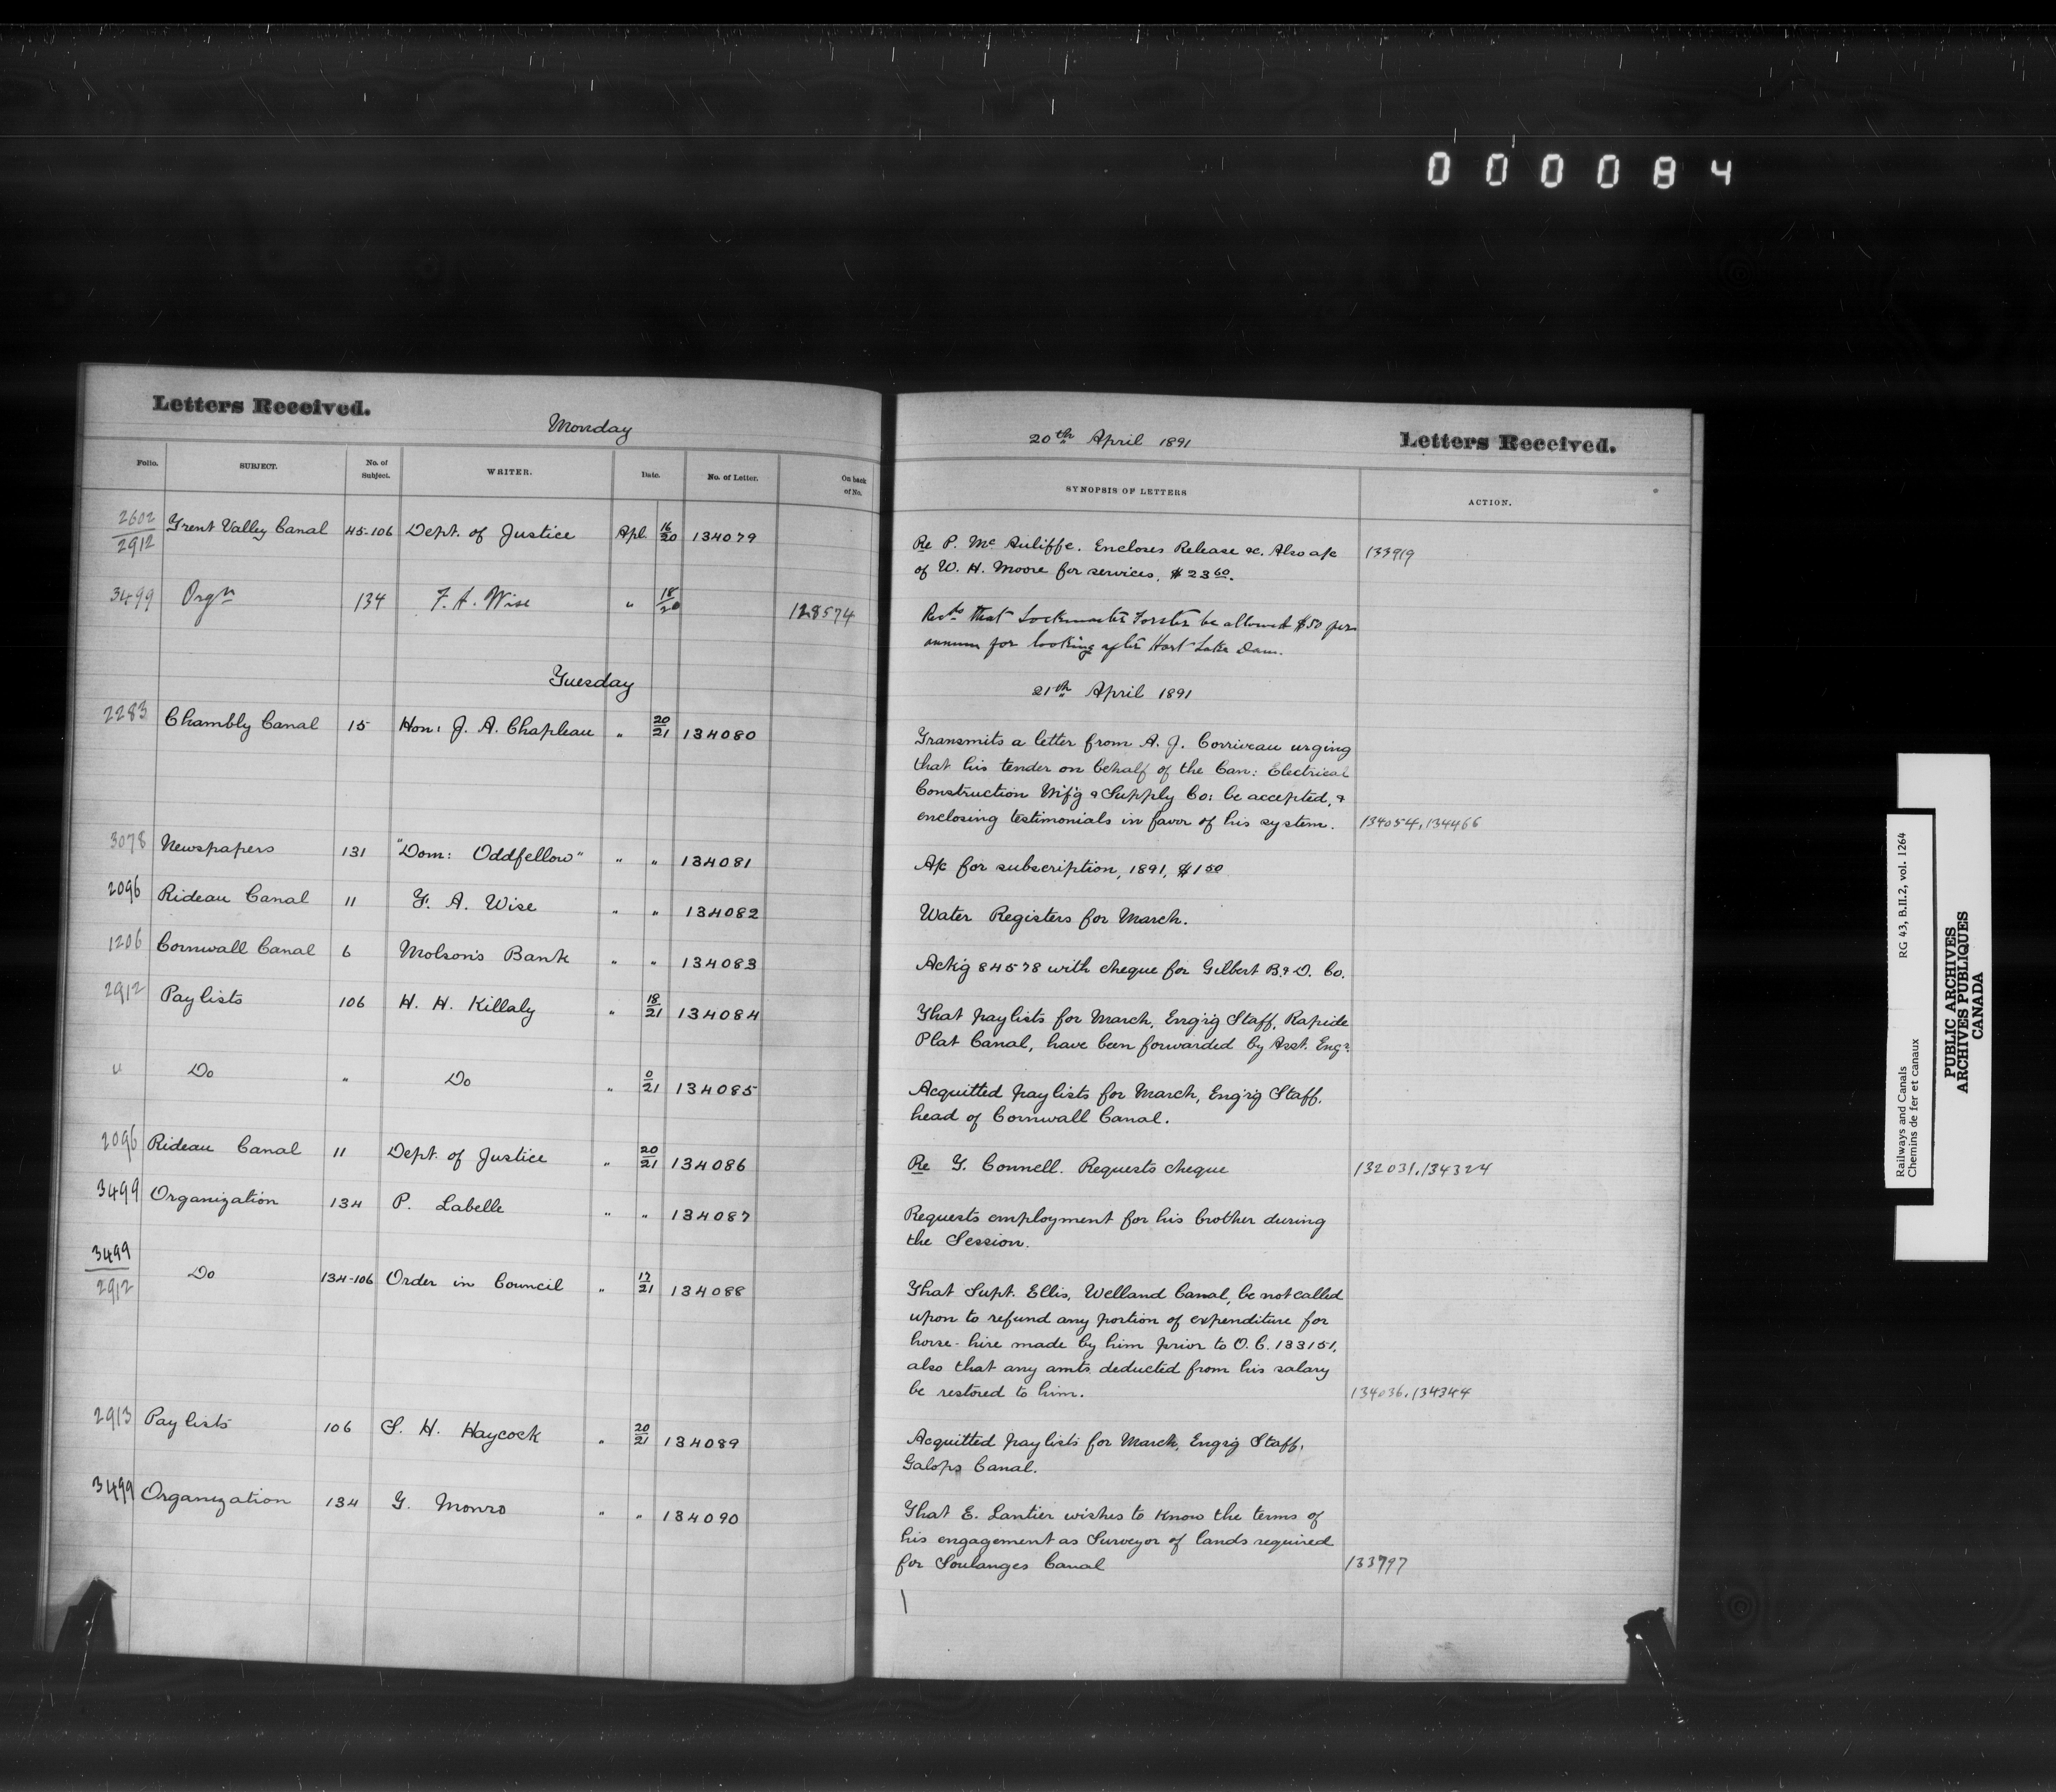 000084
Letters Received.
Monday
20th April 1891
Letters Received.
Folio. SUBJECT. No. of Subject. WRITER. Date. No. of Letter. On back of No. SYNOPSIS OF LETTERS ACTION.
2602/2912 Trent Valley Canal 45-106 Dept. of Justice Apl. 16/20 134079 Re P. McAuliffe. Encloses Release &c. Also a/c 133919
of W. H. Moore for services, $23.60.
3499 Orgn 134 F. A. Wise " 18/20 128574 Recds that Lockmaster Forster be allowed $50 per
annum for looking after Hart Lake Dam.
Tuesday
21th April 1891
2283 Chambly Canal 15 Hon: J. A. Chapleau " 20/21 134080 Transmits a letter from A. J. Corriveau urging
that his tender on behalf of the Can: Electrical
Construction M'f'g & Supply Co: be accepted, &
enclosing testimonials in favor of his system. 134054, 134466
3078 Newspapers 131 "Dom: Oddfellow" " " 134081 A/c for subscription, 1891, $1.50
2096 Rideau Canal 11 F. A. Wise " " 134082 Water Registers for March.
1206 Cornwall Canal 6 Molson's Bank " " 134083 Ack'g 84578 with cheque for Gilbert B. & D. Co.
2912 Pay lists 106 H. H. Killaly " 18/21 134084 That pay lists for March, Eng'r'g Staff, Rapide
Plat Canal, have been forwarded by Asst. Engr.
" Do " Do " 0/21 134085 Acquitted pay lists for March, Eng'r'g Staff,
head of Cornwall Canal.
2096 Rideau Canal 11 Dept. of Justice " 20/21 134086 Re G. Connell. Requests cheque 132031, 134324
3499 Organization 134 P. Labelle " " 134087 Requests employment for his brother during
the Session.
3499/2912 Do 134-106 Order in Council " 17/21 134088 That Supt. Ellis, Welland Canal, be not called
upon to refund any portion of expenditure for
horse-hire made by him prior to O. C. 133151,
also that any amts deducted from his salary
be restored to him. 134036, 134344
2913 Pay lists 106 S. H. Haycock " 20/21 134089 Acquitted pay lists for March, Engr'g Staff,
Galops Canal.
3499 Organization 134 G. Monro " " 134090 That E. Lantier wishes to know the terms of
his engagement as Surveyor of lands required
for Soulanges Canal 133797
Railways and Canals RG 43, B.II.2, vol. 1264
Chemins de fer et canaux
PUBLIC ARCHIVES
ARCHIVES PUBLIQUES
CANADA